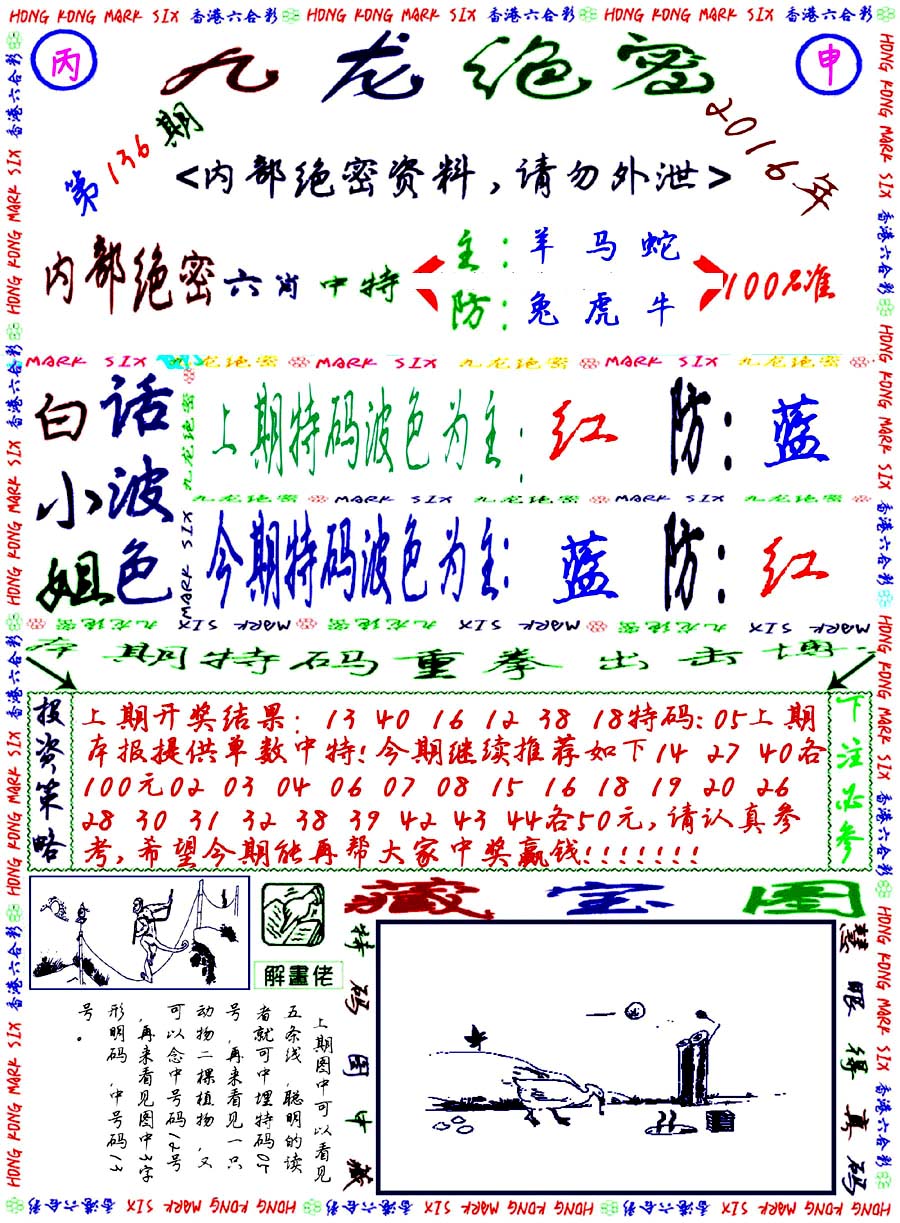 HONG KONG MARK SIX 香港六合彩 HONG KONG MARK SIX 香港六合彩 HONG KONG MARK SIX 香港六合彩
丙
九龙绝密
申
第136期
2016年
<内部绝密资料,请勿外泄>
内部绝密六肖中特
主:羊马蛇
防:兔虎牛
100%准
MARK SIX 九龙绝密 MARK SIX 九龙绝密 MARK SIX 九龙绝密
白话
小波
姐色
上期特码波色为主:红 防:蓝
九龙绝密 MARK SIX 九龙绝密 MARK SIX 九龙绝密
今期特码波色为主:蓝 防:红
本期特码重拳出击博
投资策略
上期开奖结果:13 40 16 12 38 18特码:05上期
本报提供单数中特!今期继续推荐如下14 27 40各
100元02 03 04 06 07 08 15 16 18 19 20 26
28 30 31 32 38 39 42 43 44各50元,请认真参
考,希望今期能再帮大家中奖赢钱!!!!!!!
下注必参
藏宝图
解畫佬
上期图中可以看见
五条线,聪明的读
者就可中埋特码05
号,再来看见一只
动物二棵植物,又
可以念中号码12号
,再来看见图中3字
形明码,中号码13
号。
特码图中藏
慧眼得真码